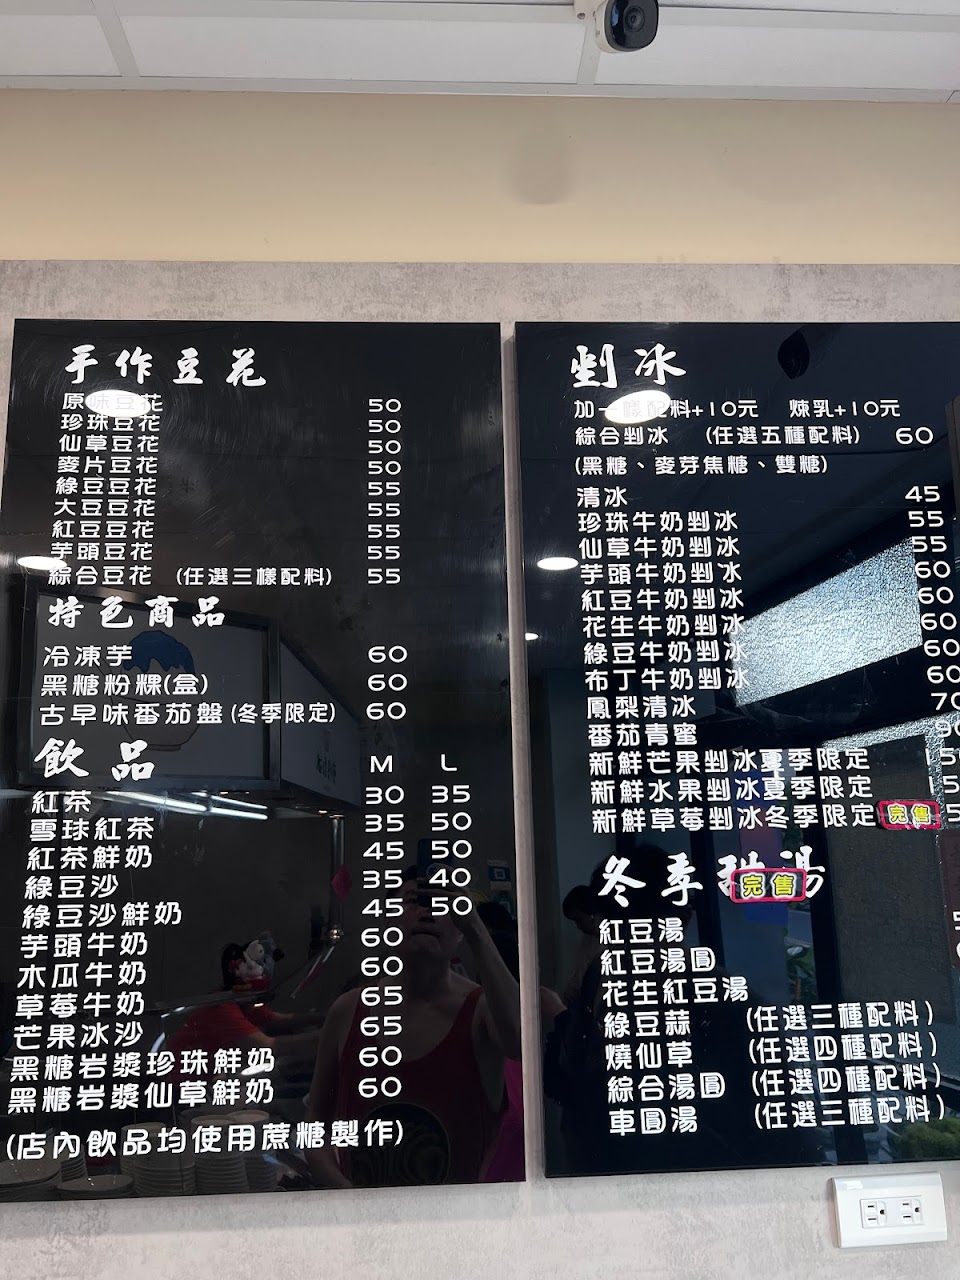 手作豆花
原味豆花 50
珍珠豆花 50
仙草豆花 50
麥片豆花 50
綠豆豆花 55
大豆豆花 55
紅豆豆花 55
芋頭豆花 55
綜合豆花 (任選三樣配料) 55
特色商品
冷凍芋 60
黑糖粉粿(盒) 60
古早味番茄盤(冬季限定) 60
飲品 M L
紅茶 30 35
雪球紅茶 35 50
紅茶鮮奶 45 50
綠豆沙 35 40
綠豆沙鮮奶 45 50
芋頭牛奶 60
木瓜牛奶 60
草莓牛奶 65
芒果冰沙 65
黑糖岩漿珍珠鮮奶 60
黑糖岩漿仙草鮮奶 60
(店內飲品均使用蔗糖製作)
剉冰
加一樣配料+10元 煉乳+10元
綜合剉冰 (任選五種配料) 60
(黑糖、麥芽焦糖、雙糖)
清冰 45
珍珠牛奶剉冰 55
仙草牛奶剉冰 55
芋頭牛奶剉冰 60
紅豆牛奶剉冰 60
花生牛奶剉冰 60
綠豆牛奶剉冰 60
布丁牛奶剉冰 60
鳳梨清冰 70
番茄青蜜
新鮮芒果剉冰夏季限定
新鮮水果剉冰夏季限定
新鮮草莓剉冰冬季限定 完售
冬季甜湯
完售
紅豆湯
紅豆湯圓
花生紅豆湯
綠豆蒜 (任選三種配料)
燒仙草 (任選四種配料)
綜合湯圓 (任選四種配料)
車圓湯 (任選三種配料)